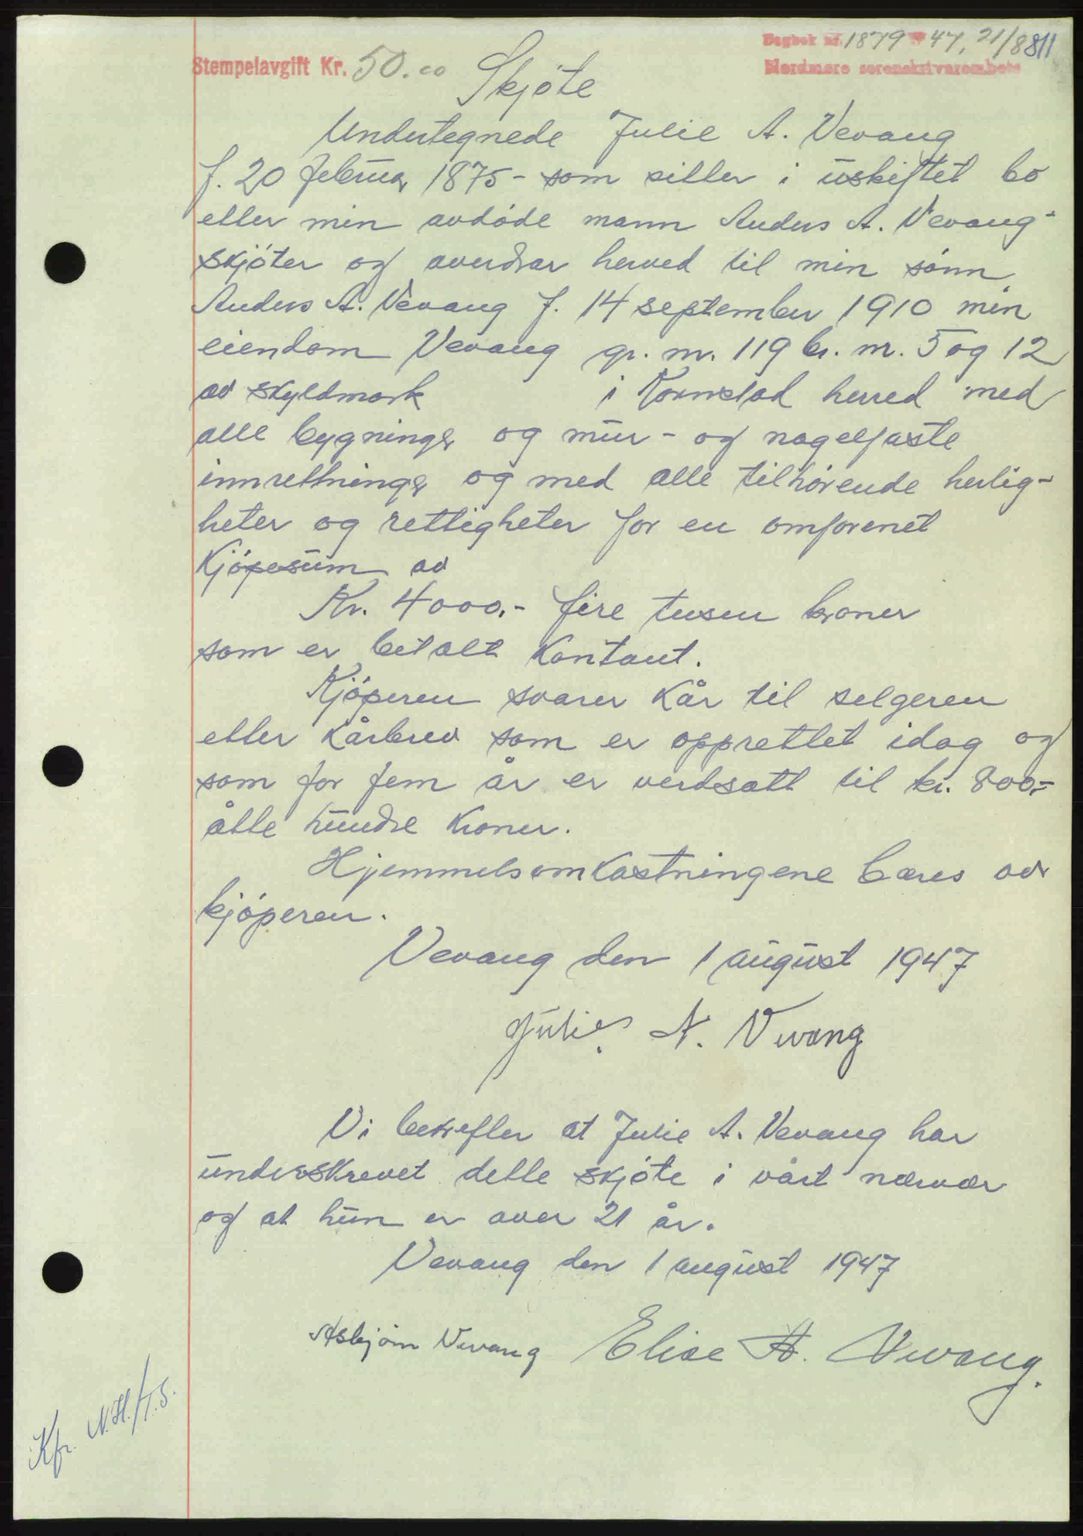 Dagbok nr. 1879 - 47, 21/8 811
Stempelavgift Kr. 50.00
Nordmøre sorenskriverembete
Skjøte
Undertegnede Julie A. Vevang
f. 20 februar 1875 - som sitter i uskiftet bo
etter min avdøde mann Anders A. Vevang -
skjøter og overdrar herved til min sønn
Anders A. Vevang f. 14 september 1910 min
eiendom Vevang gr. nr. 119 br. nr. 5 og 12
av skyldmark i Kornstad herred med
alle bygninger og mur- og nagelfaste
innretninger og med alle tilhørende herlig-
heter og rettigheter for en omforenet
kjøpesum av
Kr. 4000.- fire tusen kroner
som er betalt kontant.
Kjøperen svarer kår til selgeren
etter kårbrev som er opprettet idag og
som for fem år er verdsatt til kr. 800,-
åtte hundre kroner.
Hjemmelsomkostningene bæres av
kjøperen.
Vevang den 1 august 1947
Julie A. Vevang
Vi bekrefter at Julie A. Vevang har
underskrevet dette skjøte i vårt nærvær
og at hun er over 21 år.
Vevang den 1 august 1947
Asbjørn Vevang Elise A. Vevang.
Kfr. N.H./T.S.